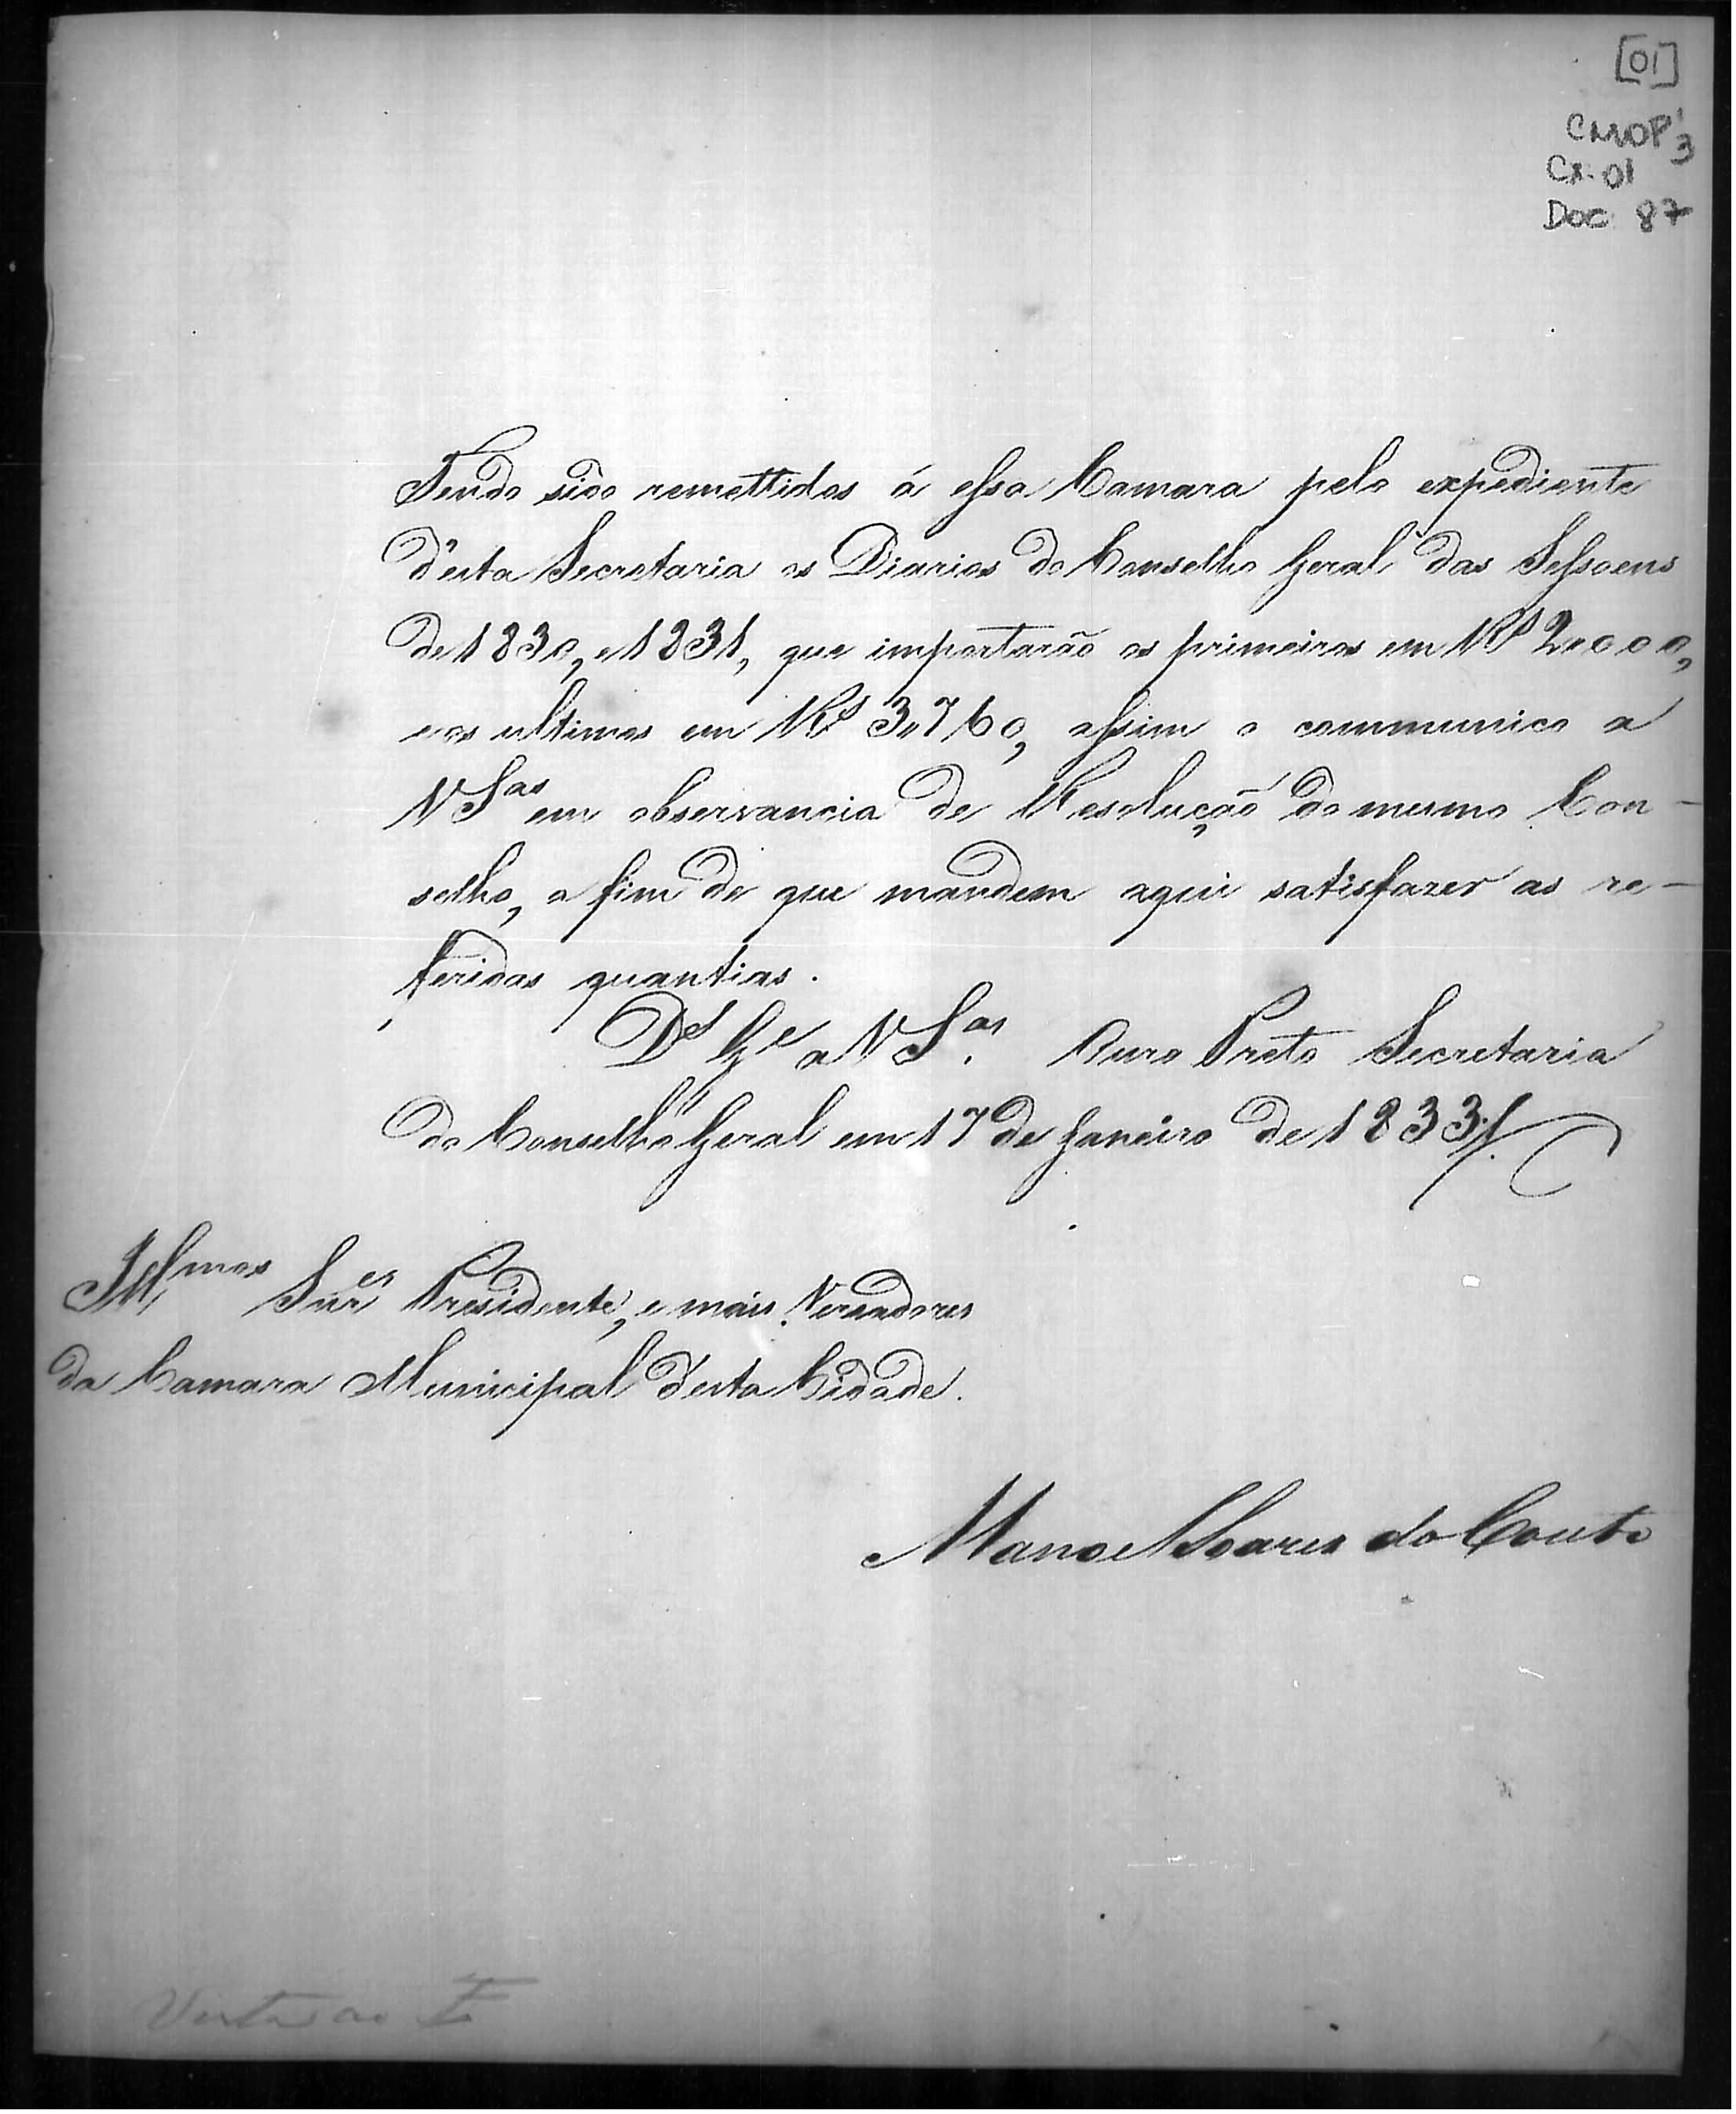 [01]
CMOP 3
Cx. 01
Doc 87
Tendo sido remettidos á essa Camara pelo expediente
d'esta Secretaria os Diarios do Conselho Geral das Sessoens
de 1830, e 1831, que importarão os primeiros em Rs 2,,000,
e os ultimos em Rs 3,,760, assim o communico a
V Sas em observancia de Resolução do mesmo Con-
selho, a fim de que mandem aqui satisfazer as re-
feridas quantias.
Ds Ge a V Sas. Ouro Preto Secretaria
do Conselho Geral em 17 de Janeiro de 1833
Illmos Snres Presidente, e mais Vereadores
da Camara Municipal d'esta Cidade.
Manoel Soares do Couto